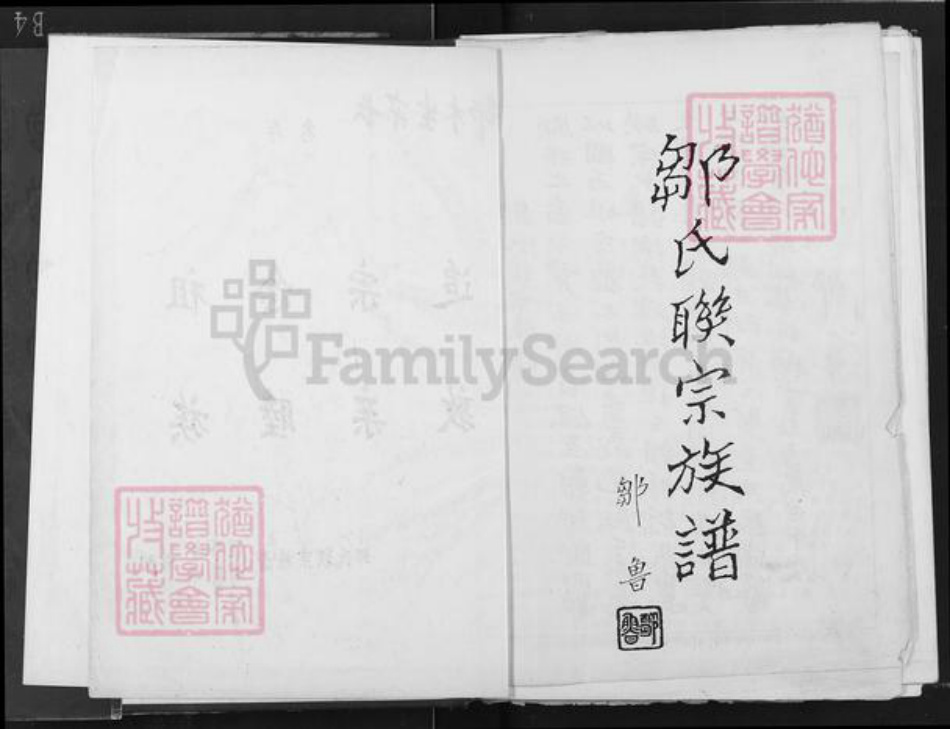 B4
鄒氏聯宗族譜
鄒魯
鄒魯
猶他家
譜學會
收藏
猶他家
譜學會
收藏
FamilySearch